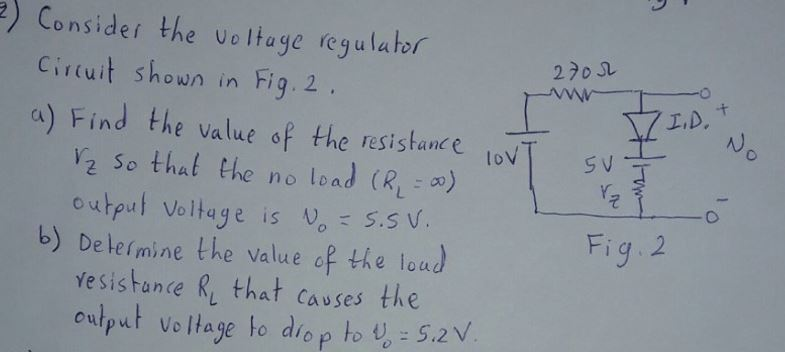 2) Consider the voltage regulator
Circuit shown in Fig. 2.
a) Find the value of the resistance
r_z so that the no load (R_L = ∞)
output voltage is v_o = 5.5 V.
b) Determine the value of the load
resistance R_L that causes the
output voltage to drop to v_o = 5.2 V.
270 Ω
I.D.
+
v_o
10V
5V
r_z
-
Fig. 2